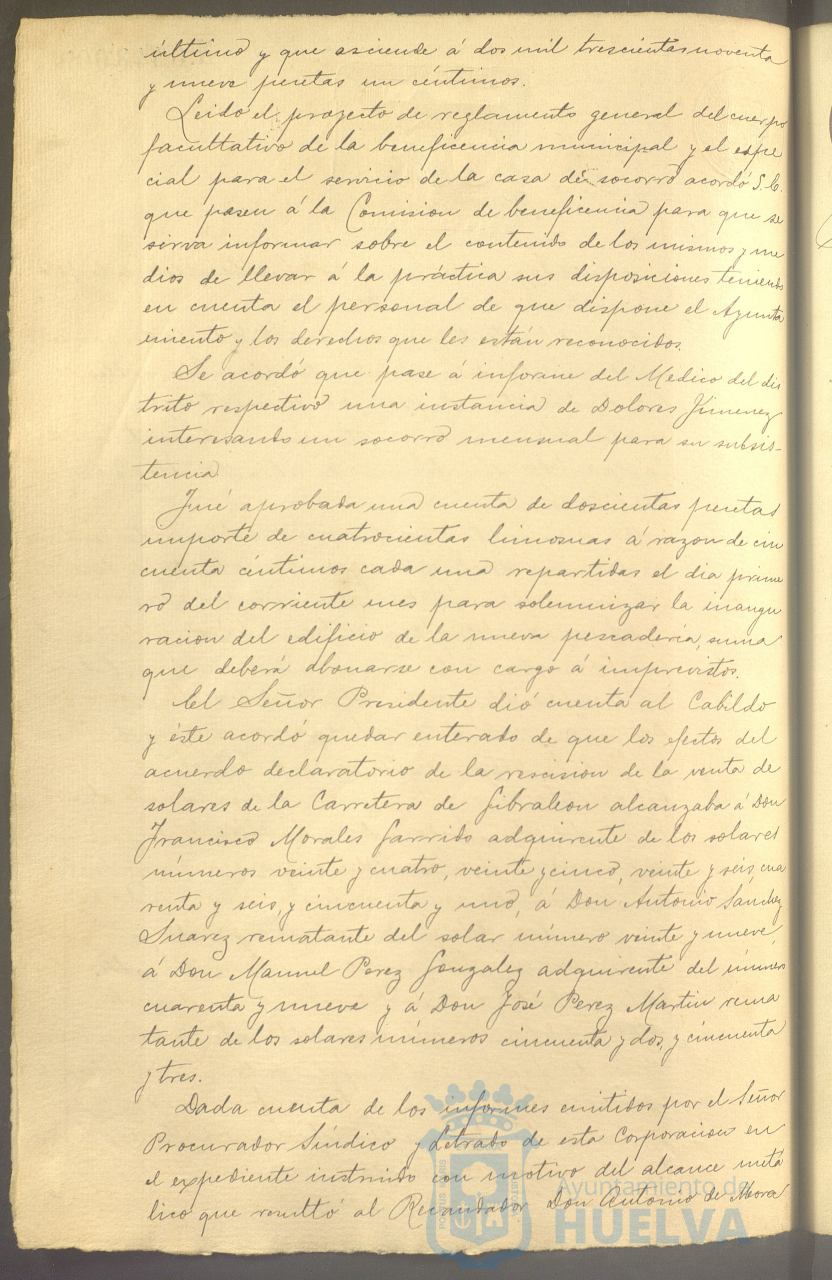 último y que asciende á dos mil trescientas noventa
y nueve pesetas un céntimos.
Leido el proyecto de reglamento general del cuerpo
facultativo de la beneficencia municipal y el espe
cial para el servicio de la casa de socorro acordó S.C.
que pasen á la Comision de beneficencia para que se
sirva informar sobre el contenido de los mismos y me
dios de llevar á la práctica sus disposiciones teniendo
en cuenta el personal de que dispone el Ayunta
miento y los derechos que les están reconocidos.
Se acordó que pase á informe del Medico del dis
trito respectivo una instancia de Dolores Jimenez
interesando un socorro mensual para su subsis-
tencia
Fué aprobada una cuenta de doscientas pesetas
importe de cuatrocientas limosnas á razon de cin
cuenta céntimos cada una repartidas el dia prime
ro del corriente mes para solemnizar la inaugu
racion del edificio de la nueva pescadería, suma
que deberá abonarse con cargo á imprevistos.
El Señor Presidente dió cuenta al Cabildo
y éste acordó quedar enterado de que los efectos del
acuerdo declaratorio de la rescision de la venta de
solares de la Carretera de Gibraleon alcanzaba á Don
Francisco Morales Garrido adquirente de los solares
números veinte y cuatro, veinte y cinco, veinte y seis, cua
renta y seis, y cincuenta y uno, á Don Antonio Sánchez
Suarez rematante del solar número veinte y nueve,
á Don Manuel Perez Gonzalez adquirente del número
cuarenta y nueve y á Don José Perez Martin rema
tante de los solares números cincuenta y dos, y cincuenta
y tres.
Dada cuenta de los informes emitidos por el Señor
Procurador Síndico y Letrado de esta Corporacion en
el expediente instruido con motivo del alcance metá
lico que resultó al Recaudador Don Antonio de Mora
Ayuntamiento de
HUELVA